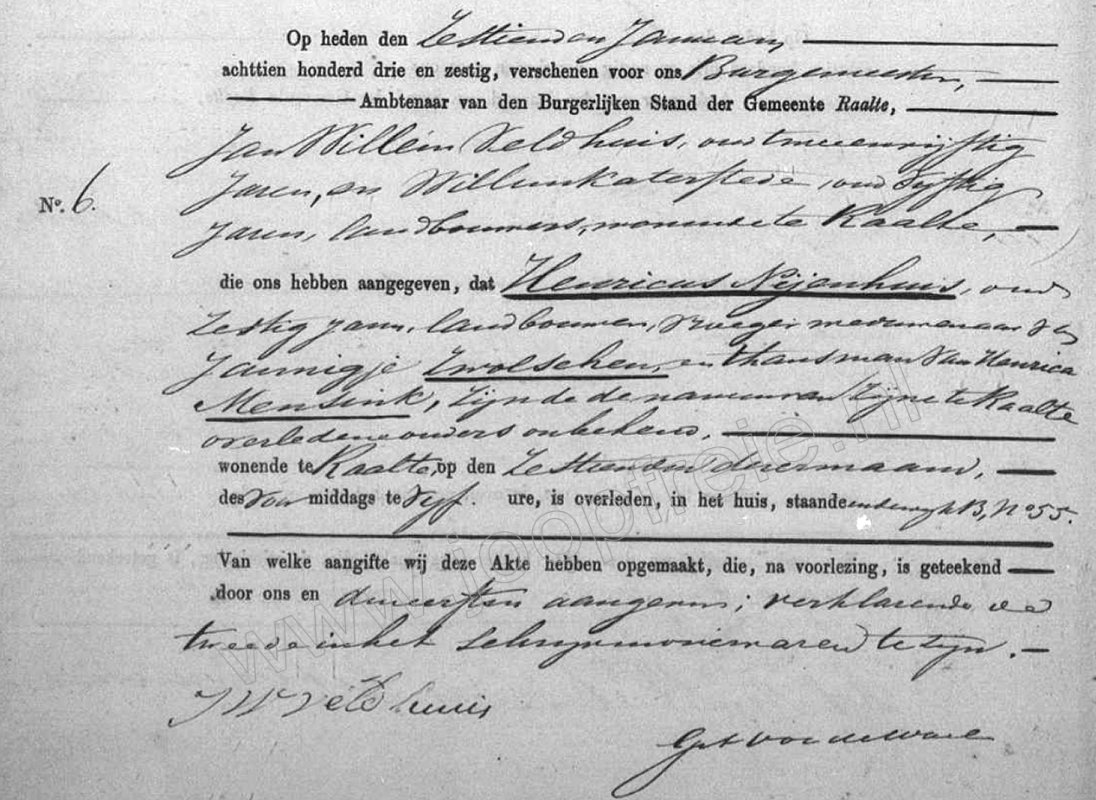 Op heden den Zestienden Januarij
achttien honderd drie en zestig, verschenen voor ons Burgemeester,
Ambtenaar van den Burgerlijken Stand der Gemeente Raalte,
Jan Willem Veldhuis, oud tweeenvijftig
Jaren, en Willem Katerstede, oud Vijftig
Jaren, landbouwers, wonende te Raalte,
No. 6.
die ons hebben aangegeven, dat Henricus Nijenhuis, oud
Zestig jaren, landbouwer, vroeger weduwenaar van
Jannigje Zwolschen, en thans man van Henrica
Mensink, zijnde de namen van zijne te Raalte
overledene ouders onbekend,
wonende te Raalte, op den Zestienden dezer maand,
des voor middags te Vijf ure, is overleden, in het huis, staande in de wijk B, No 55.
Van welke aangifte wij deze Akte hebben opgemaakt, die, na voorlezing, is geteekend
door ons en den eersten aangever; verklarende de
tweede in het schrijven onervaren te zijn.
JW Veldhuis
www.jooptreie.nl